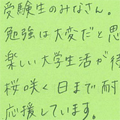 受験生のみなさん。
勉強は大変だと思
楽しい大学生活が待
桜咲く日まで耐
応援しています。